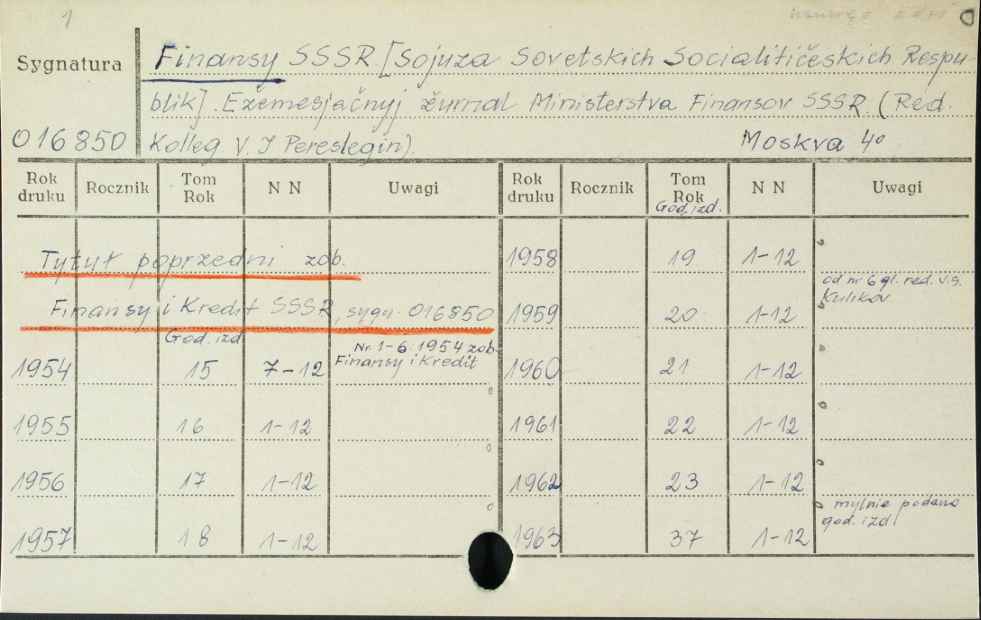 1
Sygnatura
016850
Finansy SSSR [Sojuza Sovetskich Socialitičeskich Respu-
blik]. Ežemesjačnyj žurnal Ministerstva Finansov SSSR. (Red.
Kolleg V. I Pereslegin). Moskva 4°
Rok druku Rocznik Tom Rok N N Uwagi Rok druku Rocznik Tom Rok N N Uwagi
God. izd.
Tytuł poprzedni zob. 1958 19 1-12
Finansy i Kredit SSSR, sygn. 016850 1959 20 1-12 od nr 6 gl. red. V.G. Kulikov
God. izd. Nr. 1-6 1954 zob.
1954 15 7-12 Finansy i Kredit 1960 21 1-12
1955 16 1-12 1961 22 1-12
1956 17 1-12 1962 23 1-12
1957 18 1-12 1963 37 1-12 mylnie podano god. izd.